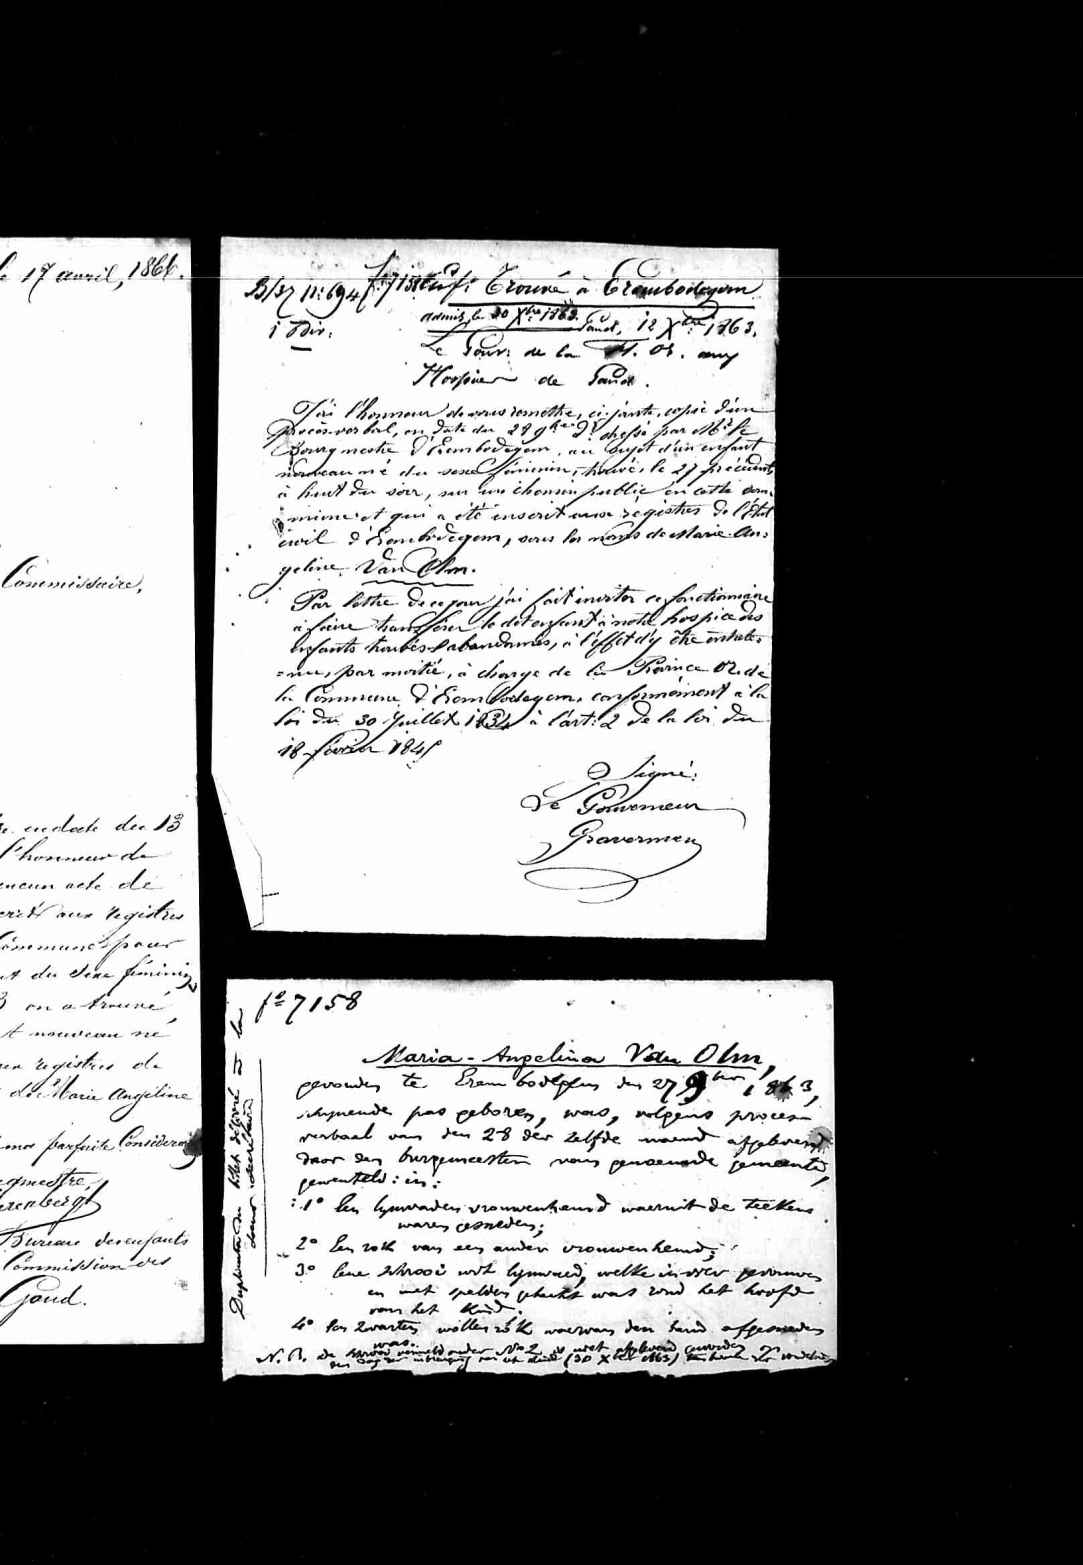 le 17 avril, 1864.
Commissaire,
en date du 13
l'honneur de
aucun acte de
aux registres
Commune pour
du sexe féminin
on a trouvé
nouveau né
registres de
de Marie Angéline
ma parfaite Considération
Bureau des enfants
Commission des
Gand.
B/57 N: 694
f° 7158 Enf: Trouvé à Erembodegem
1 Div:
admis le 30 Xbre 1863.
Gand, 12 Xbre 1863.
Le Gouv: de la Fl. Or. aux
Hospices de Gand.
J'ai l'honneur de vous remettre, ci-jointe, copie d'un
procès-verbal, en date du 28 9bre dr dressé par Mr le
Bourgmestre d'Erembodegem, au sujet d'un enfant
nouveau né du sexe féminin, trouvé, le 27 précédent
à huit du soir, sur un chemin public en cette com-
mune et qui a été inscrit aux registres de l'état
civil d'Erembodegem, sous les noms de Marie An-
geline Van Olm.
Par lettre de ce jour j'ai fait inviter ce fonctionnaire
à faire transférer le dit enfant à votre hospice des
enfants trouvés & abandonnés, à l'effet d'y être entrete-
=nu, par moitié, à charge de la Province & de
la Commune d'Erembodegem, conformément à la
loi du 30 Juillet 1834 & à l'art: 2 de la loi du
18 février 1845
Signé:
Le Gouverneur
f° 7158
Duplicata du billet délivré à la
Maria-Angelina Van Olm,
gevonden te Erembodegem den 27 9ber 1863,
schijnende pas geboren, was, volgens proces
verbaal van den 28 der zelfde maend afgeleverd
door den burgemeester van genoemde gemeente,
gewenteld: in:
1° Een lynwaden vrouwenhemd waeruit de teekens
waren gesneden;
2° Een rok van een ander vrouwenhemd;
3° Eene schrooi wit lynwaed, welke in vier gevouwen
en met spelden gehecht was rond het hoofd
van het kind.
4° Een zwarten wollen rok waervan den band afgesneden
was.
N.B. De vermeld onder N° 2 is niet afgeleverd geworden
den dag der inbrenging van het kind (30 Xber 1863)